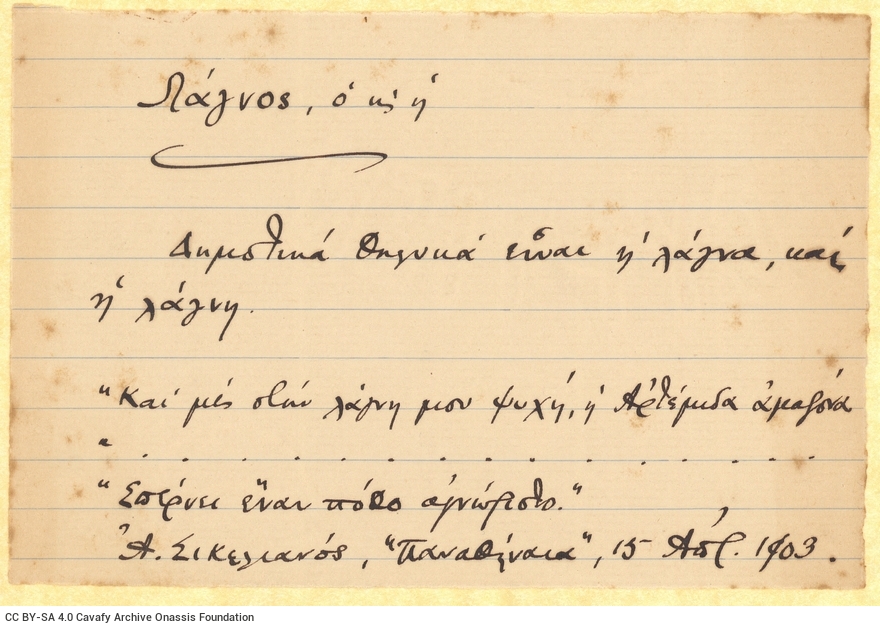 Λάγνος, ὁ κ' ἡ
Δημοτικά θηλυκά εἶναι ἡ λάγνα, καί
ἡ λάγνη.
"Καί μές στήν λάγνη μου ψυχή, ἡ Ἀρτέμιδα ἀμαζόνα
" . . . . . . . . . . . . . . . .
"Σπέρνει ἕναν πόθο ἀγνώριστο."
Ἀ. Σικελιανός, "Παναθήναια", 15 Ἀπρ. 1903.
CC BY-SA 4.0 Cavafy Archive Onassis Foundation